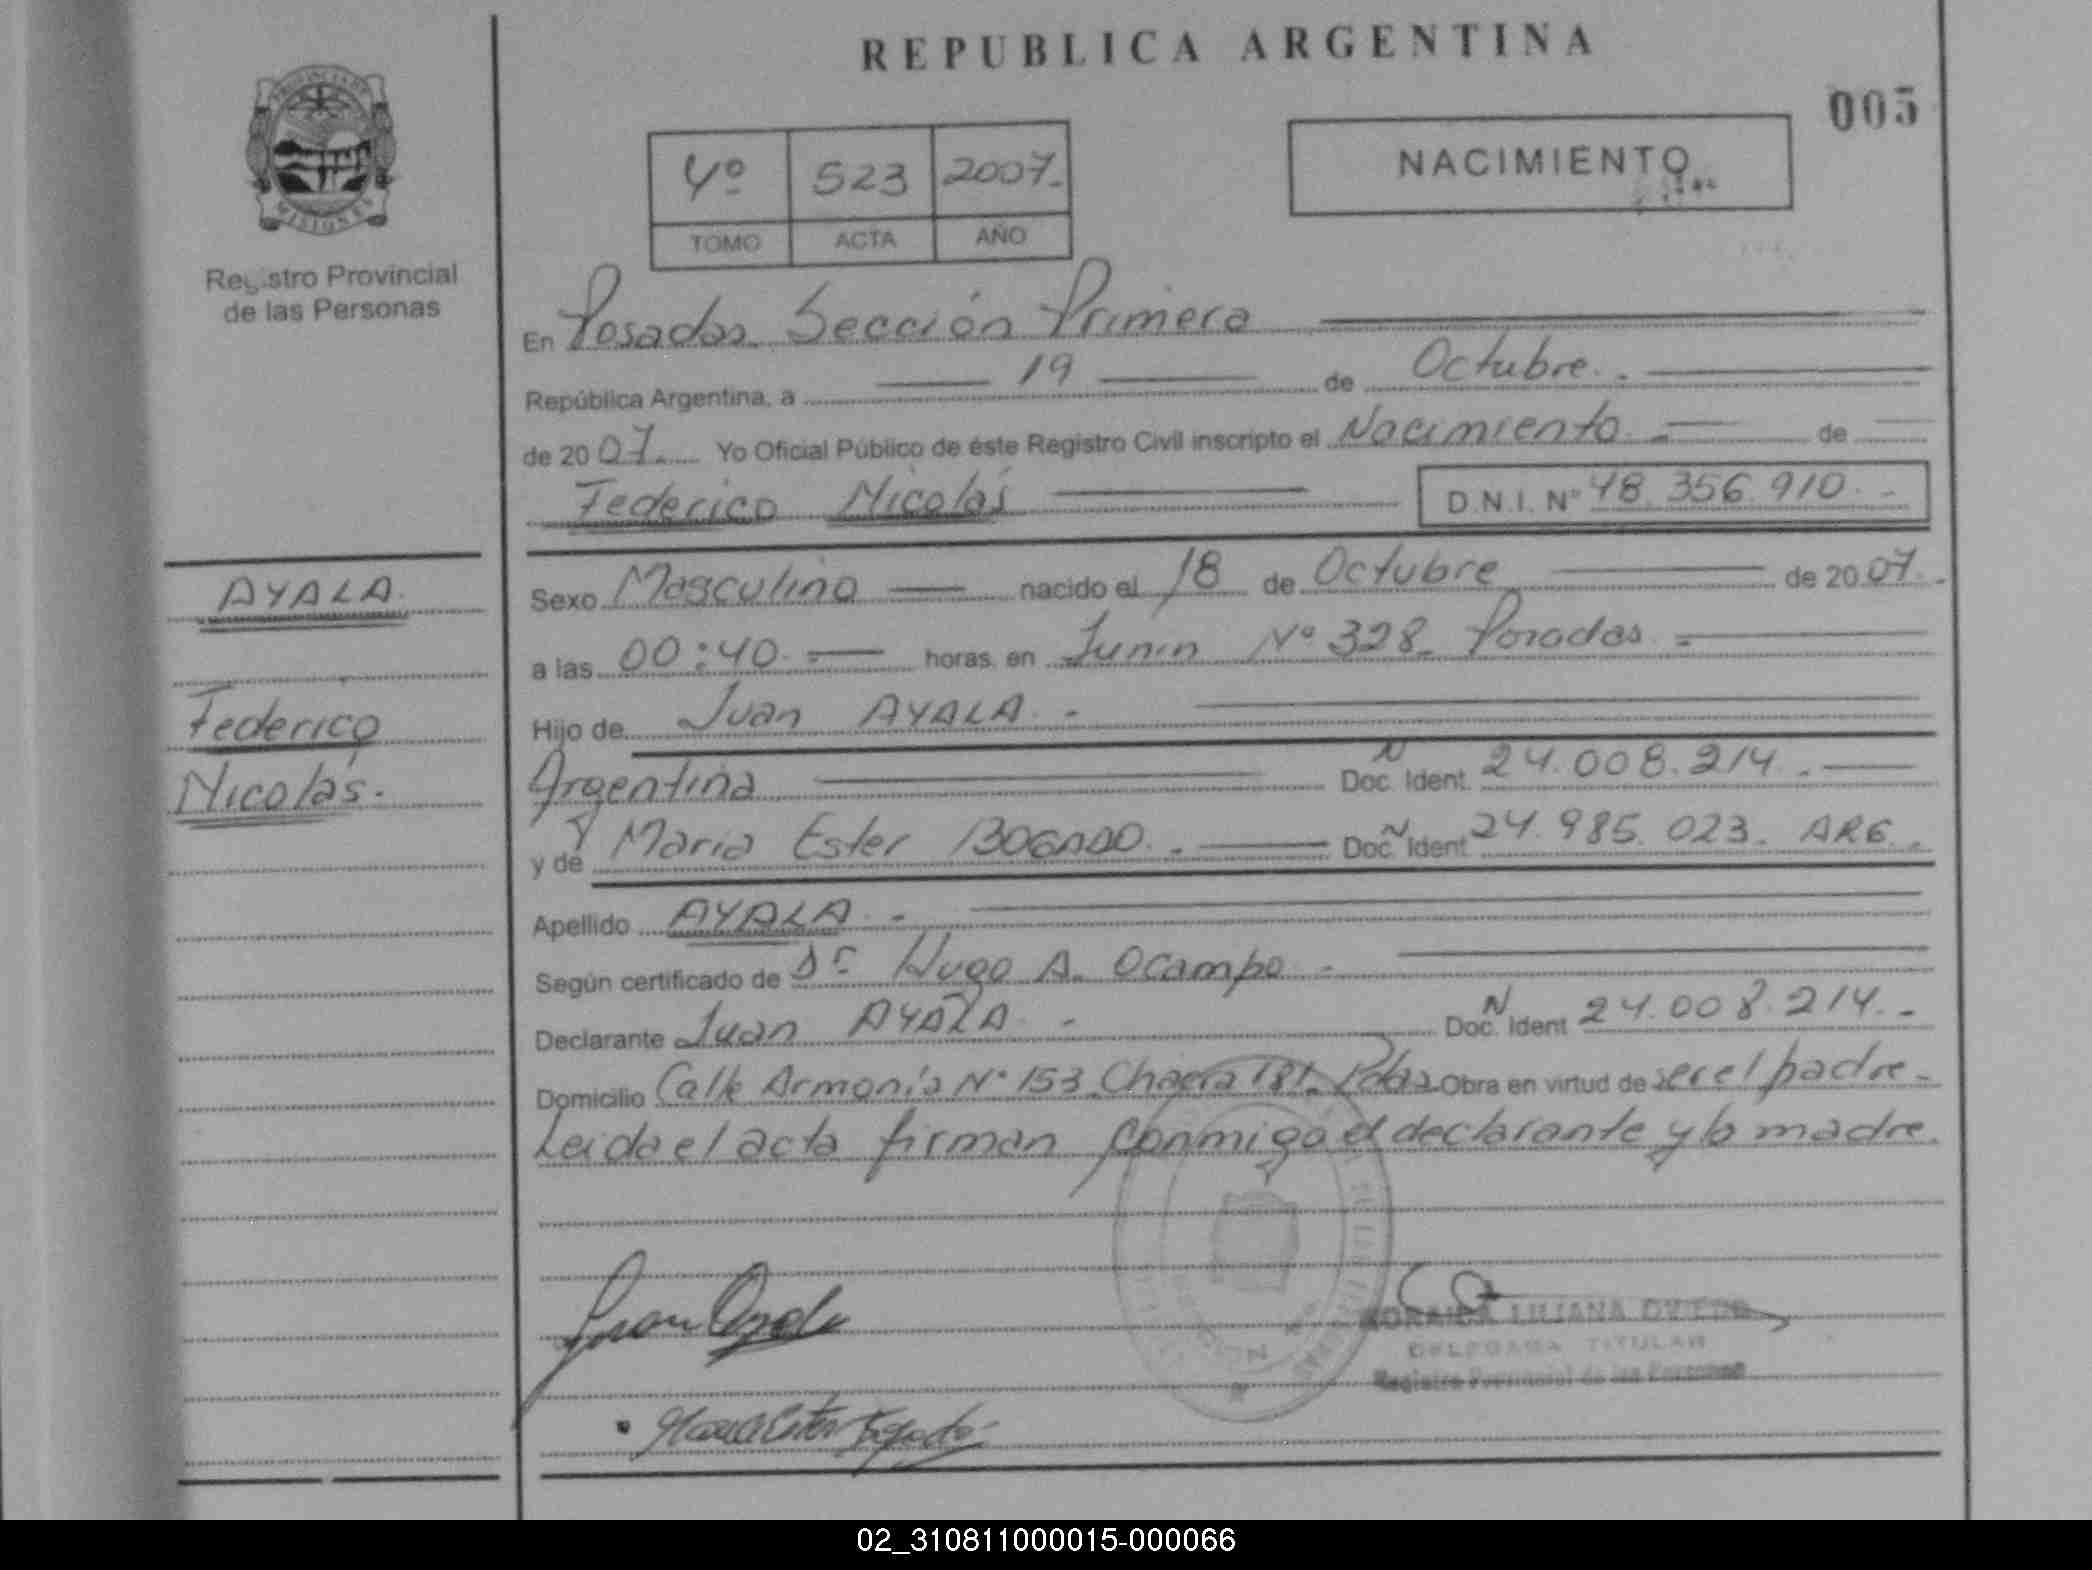 REPUBLICA ARGENTINA
005
PROVINCIA DE
MISIONES
Registro Provincial
de las Personas
4º 523 2007.
TOMO ACTA AÑO
NACIMIENTO
En Posadas Sección Primera
República Argentina, a 19 de Octubre.
de 2007. Yo Oficial Público de éste Registro Civil inscripto el Nacimiento de
Federico Nicolás D.N.I. Nº 48.356.910.
AYALA.
Federico
Nicolás.
Sexo Masculino nacido el 18 de Octubre de 2007.
a las 00:40. horas, en Junín Nº 328. Posadas.
Hijo de Juan AYALA.
Argentina Doc. N Ident. 24.008.214.
y de Maria Ester BOGADO. Doc. N Ident 24.985.023. ARG.
Apellido AYALA.
Según certificado de Dr Hugo A. Ocampo
Declarante Juan AYALA Doc. N Ident 24.008.214.
Domicilio Calle Armonía Nº 153 Chacra 181. Pdas. Obra en virtud de ser el padre.
Leída el acta firman conmigo el declarante y la madre.
Juan Ayala
LILIANA
DELEGADA TITULAR
Registro Provincial de las Personas
Maria Ester Bogado
02_310811000015-000066